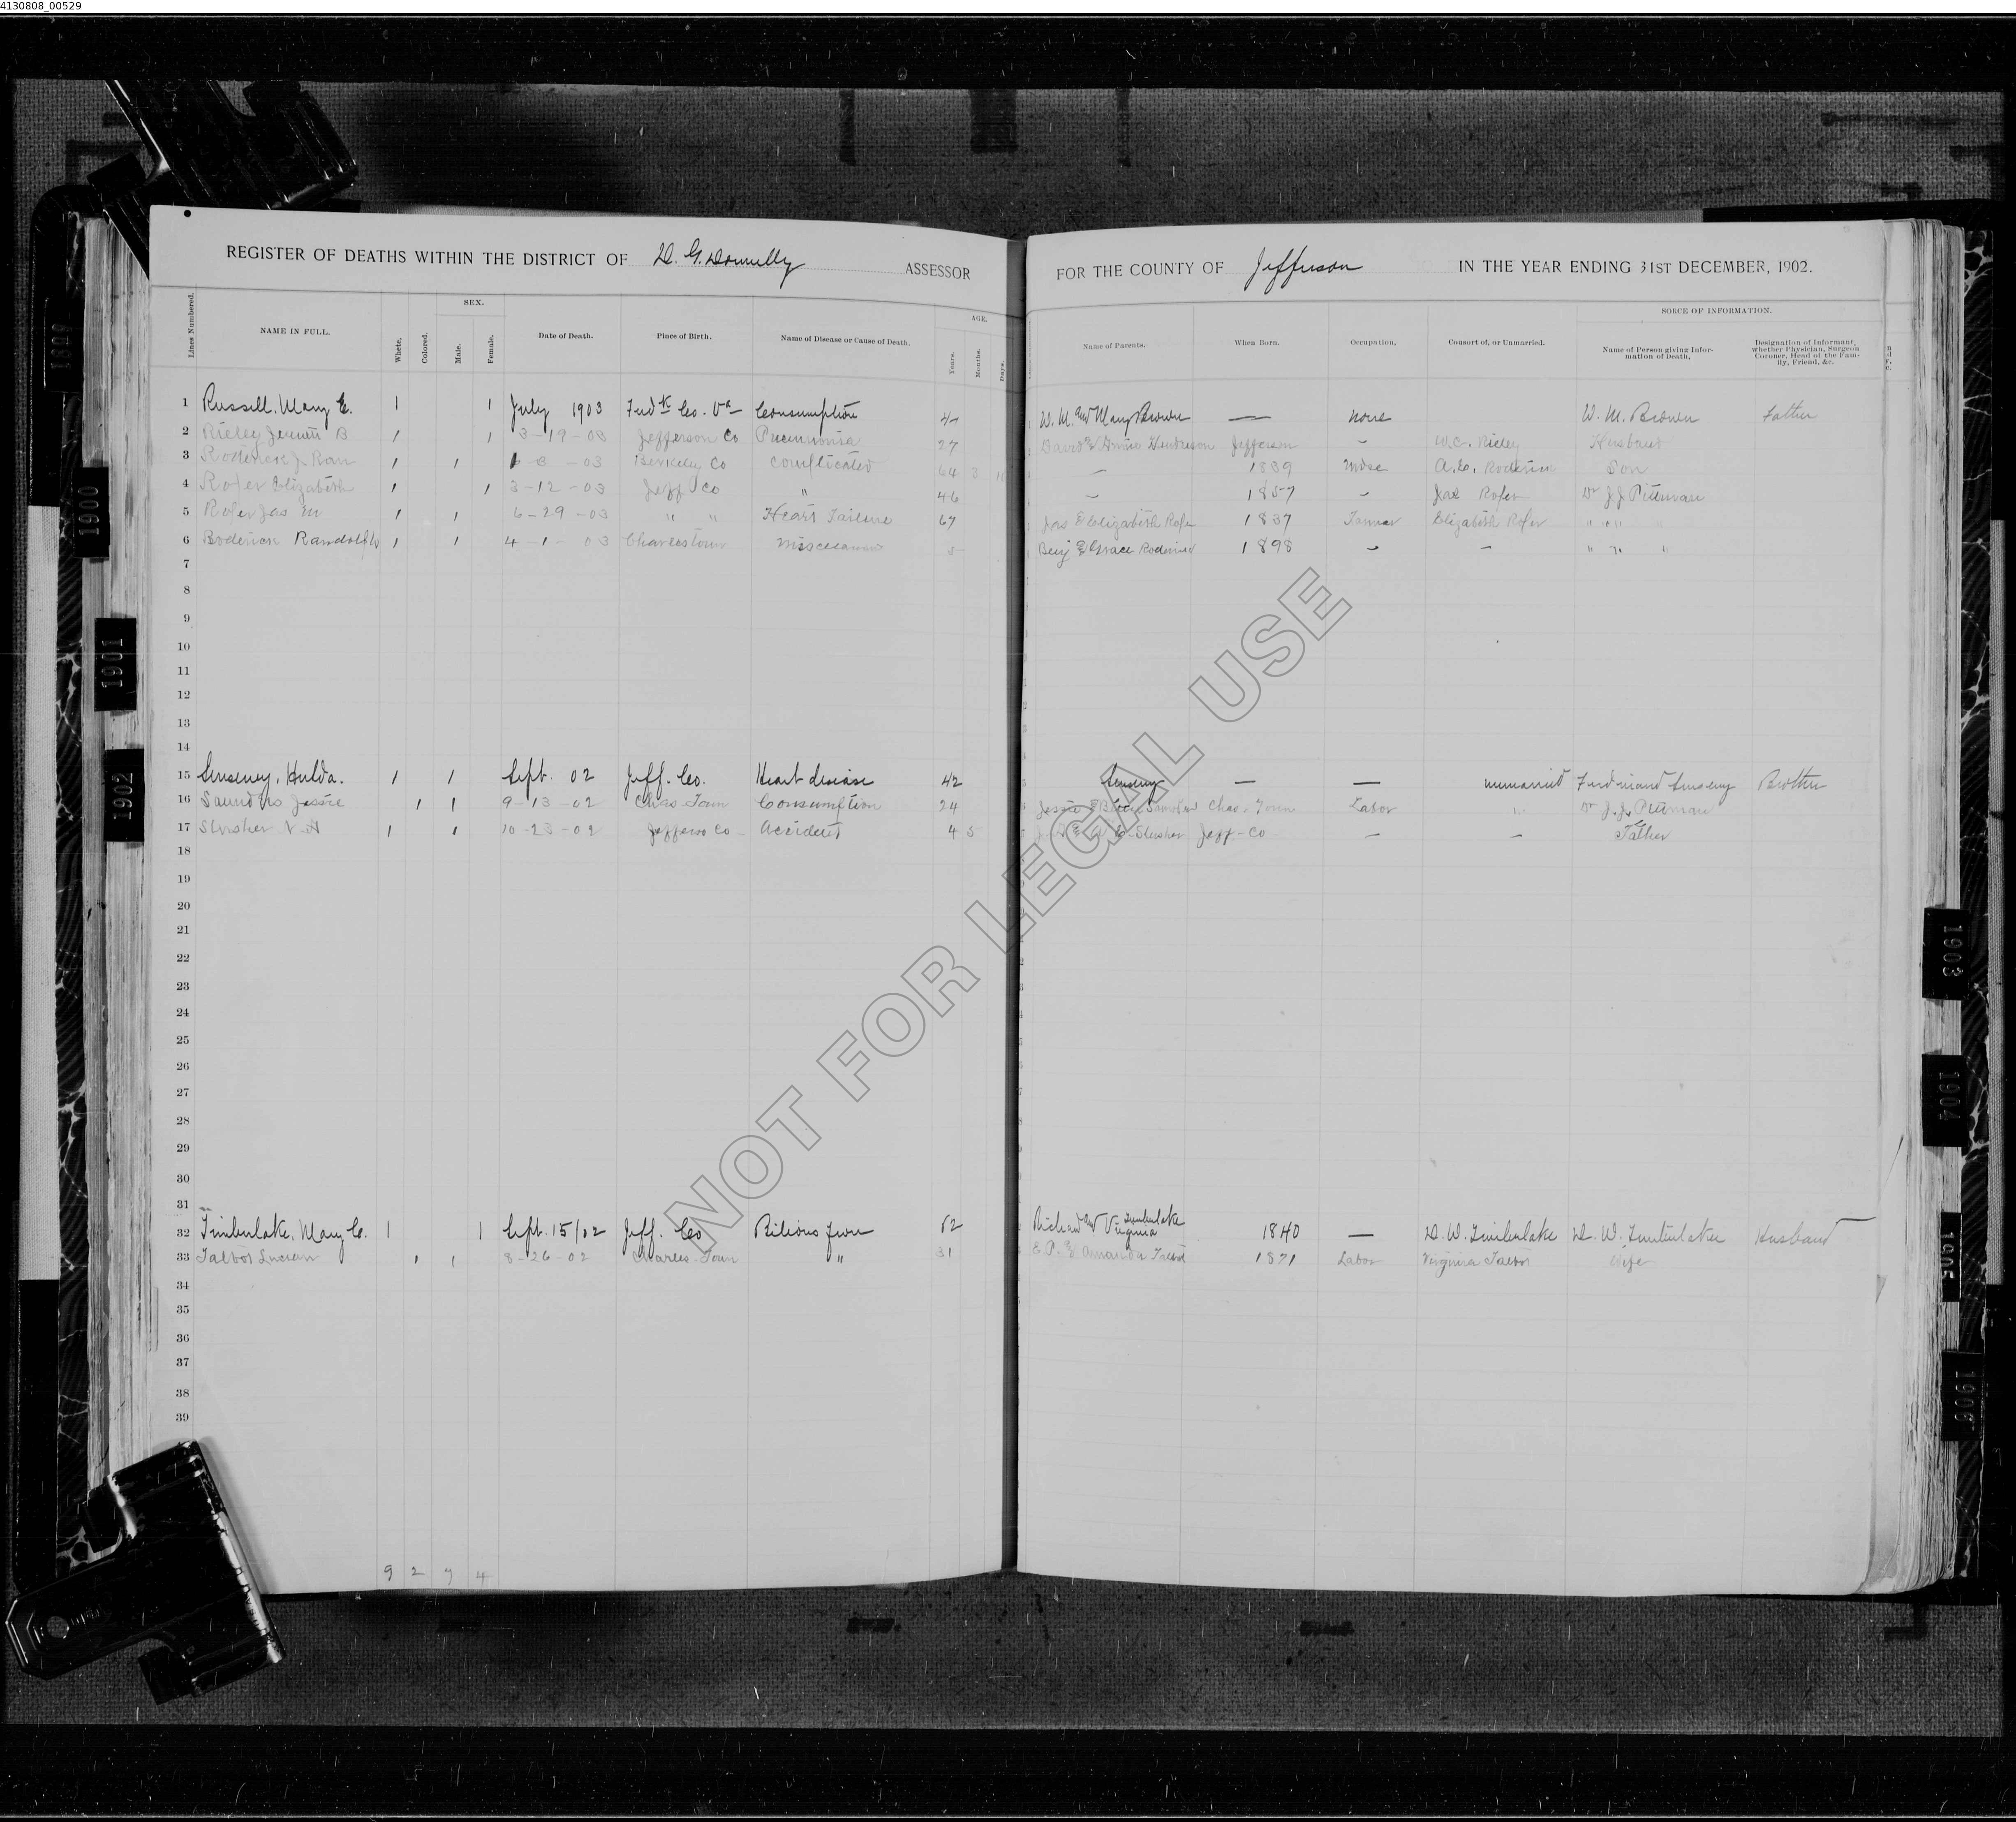 4130808_00529
REGISTER OF DEATHS WITHIN THE DISTRICT OF D. G. Donnelly ASSESSOR FOR THE COUNTY OF Jefferson IN THE YEAR ENDING 31ST DECEMBER, 1902.
Lines Numbered. NAME IN FULL. White, Colored. SEX. Male. Female. Date of Death. Place of Birth. Name of Disease or Cause of Death. AGE. Years. Months. Days. Name of Parents. When Born. Occupation, Consort of, or Unmarried. SORCE OF INFORMATION. Name of Person giving Information of Death, Designation of Informant, whether Physician, Surgeon Coroner, Head of the Family, Friend, &c.
1 Russell, Mary E. 1 1 July 1903 Fredk Co. Va Consumption W. M. and Mary Brown — none W. M. Brown Father
2 Rieley Jennett B 1 1 3-19-03 Jefferson Co Pneumonia 27 David & Annie Henderson Jefferson - W.C. Rieley Husband
3 Roderick J. Ran 1 1 6-8-03 Berkeley Co Complicated 64 3 - 1839 Mdse A. C. Roderick Son
4 Roper Elizabeth 1 1 3-12-03 Jeff Co " 46 - 1857 - Jas Roper Dr J. J. Pittman
5 Roper Jas M 1 1 6-29-03 " " Heart Failure 67 Jas & Elizabeth Roper 1837 Farmer Elizabeth Roper " " "
6 Roderick Randolph 1 1 4-1-03 Charlestown 5 Benj & Grace Roderick 1898 - - " " "
7
8
9
10
11
12
13
14
15 Senseny, Hulda. 1 1 Sept. 02 Jeff. Co. Heart disease 42 Senseny — — unmarried Ferdinand Senseny Brother
16 Saunders Jessie 1 1 9-13-02 Chas Town Consumption 24 Jessie & Chas. Town Labor " Dr J. J. Pittman
17 Slusher N. A 1 1 10-23-02 Jefferson Co Accident 4 5 Slusher Jeff-Co - - Father
18
19
20
21
22
23
24
25
26
27
28
29
30
31
32 Timberlake, Mary C. 1 1 Sept. 15/02 Jeff. Co Bilious fever 62 Richard and Virginia Timberlake 1840 — D. W. Timberlake D. W. Timberlake Husband
33 Talbot Lucien 1 1 8-26-02 Charles Town " 31 E. P. & Amanda Talbot 1871 Labor Virginia Talbot Wife
34
35
36
37
38
39
9 2 7 4
1899
1900
1901
1902
1903
1904
1905
1906
NOT FOR LEGAL USE